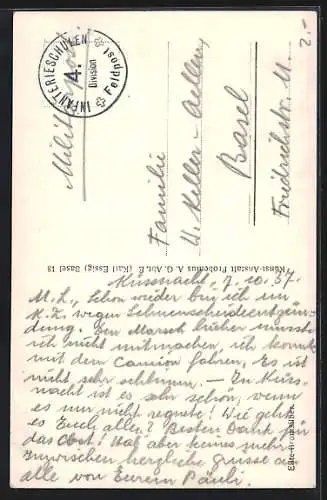 INFANTERIESCHULEN
4. Division
Feldpost
Militär
Familie
W. Keller-
Basel
Friedrichstr. 11
2.-
Kunst-Anstalt Frobenius A. G. Abt. E. (Karl Essig) Basel 13
Küssnacht, 7. 10. 37.
M. L., Schon wieder bin ich im
K. Z. wegen Sehnenscheideentzün-
dung. Den Marsch bisher musste
ich nicht mitmachen, ich konnte
mit dem Camion fahren, Es ist
nicht sehr schlimm. — In Küss-
nacht ist es sehr schön, wenn
es nur nicht regnet! Wie geht
es Euch allen? Besten Dank für
das Obst! Hab aber keines mehr.
Inzwischen herzliche Grüsse an
alle von Eurem Pauli.